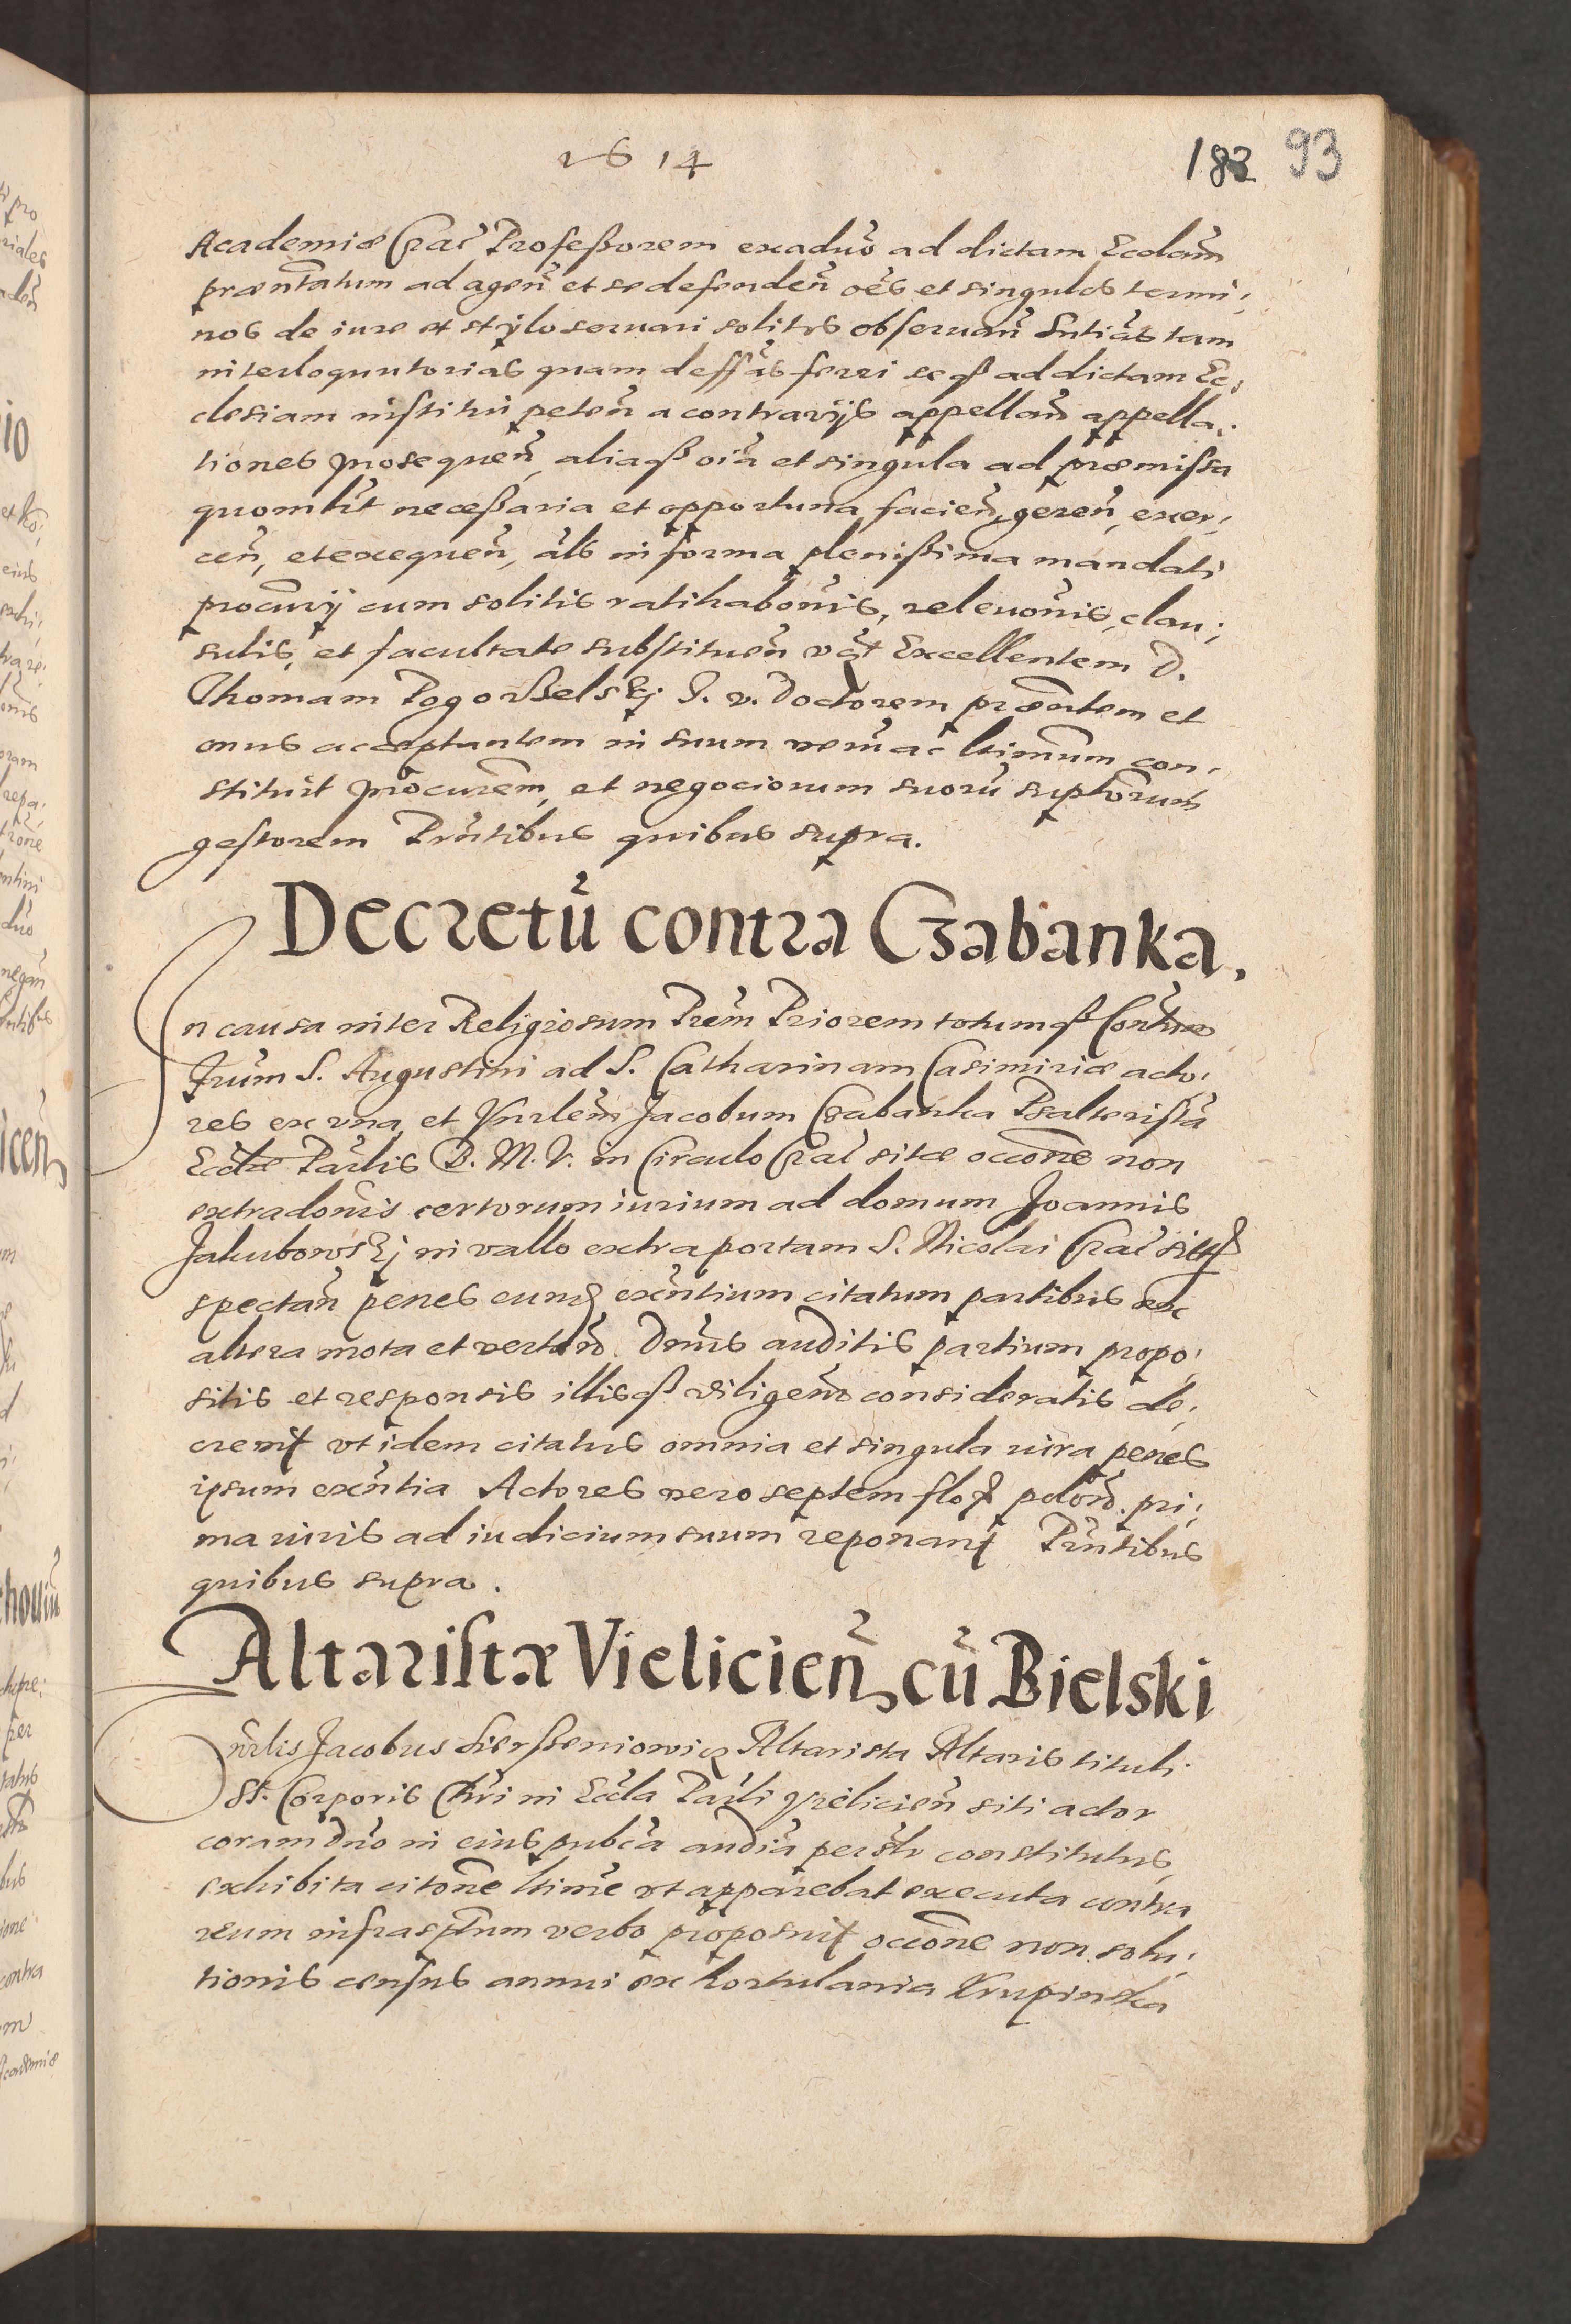 1614
182 93
Academiæ Crac̃ Profeßorem ex aduõ ad dictam Eccłam
præntatum ad agen̄ et se defenden̄ oēs et singulos termi,
nos de iure et stylo seruari solitos obseruan̄ Sntias tam
interloquutorias quam deffãs ferri seqß ad dictam Ec,
clesiam institui peten̄ a contrarijs appellan̄ appella,
tiones prosequen̄, aliaqß oĩa et singula ad præmissa
quomłt neceßaria et opportuna facien̄, geren̄, exer,
cen̄, et exequen̄, als in forma plenißima mandati
procurij cum solitis ratihabõnis, releuõnis, clau,
sulis, et facultate substituen̄ vñt Excellentem D.
Thomam Pogorßelskj J. v. Doctorem præntem et
onus acceptantem in suum verũ ac ltimum con,
stituit procurem, et negociorum suorũ suptorum
gestorem Pntibus quibus supra.
Decretũ contra Czabanka.
In causa inter Religiosum Prem Priorem totumqß Contum
Frum S. Augustini ad S. Catharinam Casimiriæ acto,
res ex vna, et Vnrłem Jacobum Czabanka Psalteristã
Eccłæ Parlis B. M. V. in Circulo Crac̃ sitæ occõne non
extradõnis certorum iurium ad domum Joannis
Jakubowskj in vallo extra portam S. Nicolai Crac̃ sitã
spectan̄ penes eundꝫ exñtium citatum partibus ex
altera mota et verten̄. Dnus auditis partium propo,
sitis et responsis illisqß diligenr consideratis de,
creuit vt idem citatus omnia et singula iura penes
ipsum exñtia Actores vero septem flor polon̄. pri,
ma iuris ad iudicium suum reponant Pntibus
quibus supra.
Altaristæ Vielicien̄, cũ Bielski
Vnrlis Jacobus Sierßeniowicz Altarista Altaris tituli
SS. Corporis Chri in Eccła Parłi Vielicien̄ siti actor
coram Dno in eius pubca audia personlr constitutus,
exhibita citõne ltime vt apparebat executa contra
reum infrasptum verbo proposuit occõne non solu,
tionis census annui ex hortulania Krupinska